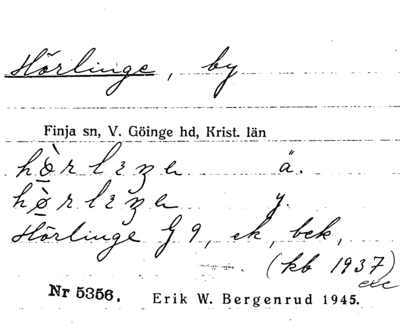 Hörlinge, by
Finja sn, V. Göinge hd, Krist. län
ä.
y.
Hörlinge G 9, ek, bck,
(kb 1937)
Nr 5356. Erik W. Bergenrud 1945.